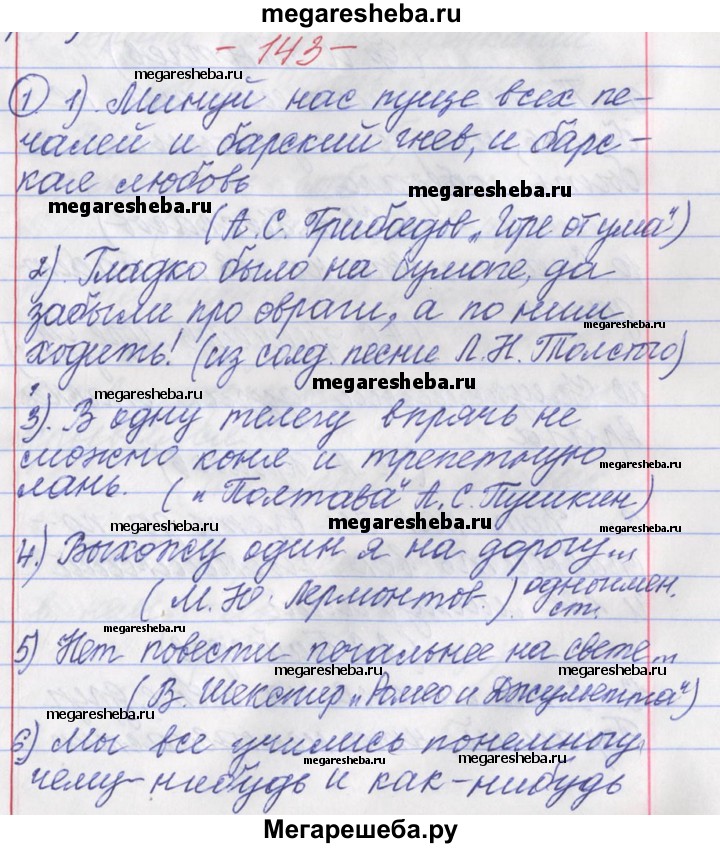 megaresheba.ru
- 143 -
megaresheba.ru
① 1) Минуй нас пуще всех пе-
чалей и барский гнев, и барс-
кая любовь
megaresheba.ru
megaresheba.ru
(А. С. Грибоедов „Горе от ума")
2). Гладко было на бумаге, да
забыли про овраги, а по ним
megaresheba.ru
ходить! (из солд. песни Л. Н. Толстого)
megaresheba.ru
megaresheba.ru
3). В одну телегу впрячь не
можно коня и трепетную
megaresheba.ru
лань. („Полтава" А. С. Пушкин)
megaresheba.ru
megaresheba.ru
4.) Выхожу один я на дорогу...
(М. Ю. Лермонтов.) одноимен.
ст.
megaresheba.ru
megaresheba.ru
5) Нет повести печальнее на свете...
megaresheba.ru
megaresheba.ru
(В. Шекспир „Ромео и Джульетта")
megaresheba.ru
6) Мы все учились понемногу
megaresheba.ru
чему-нибудь и как-нибудь
megaresheba.ru
megaresheba.ru
Мегарешеба.ру